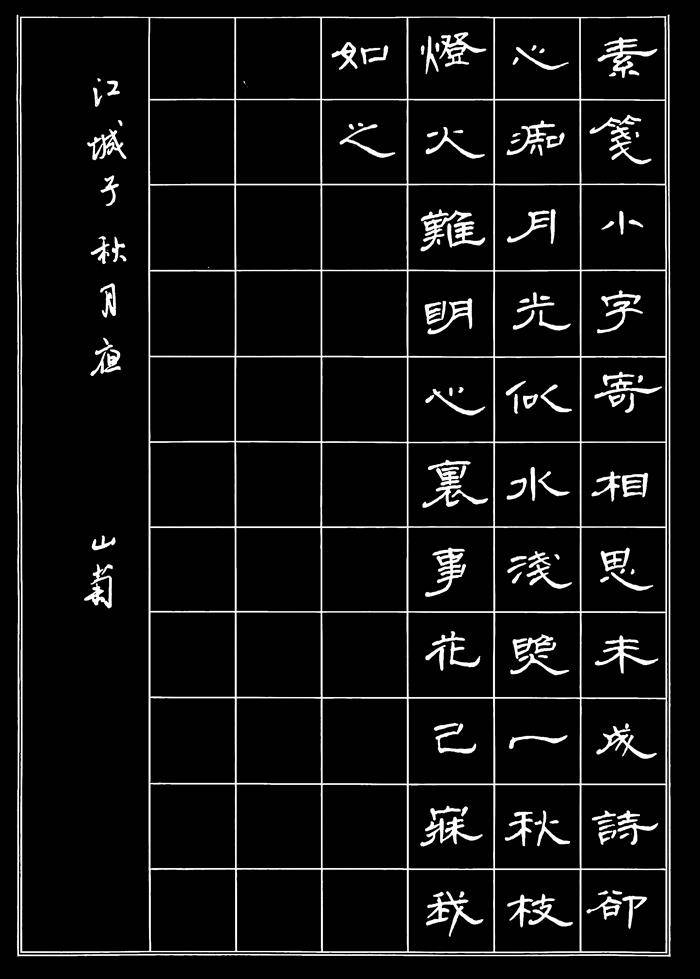 素箋小字寄相思未成詩卻
心痴月光似水淺照一秋枝
燈火難明心裏事花已寐我
如之
江城子 秋月夜 山菊